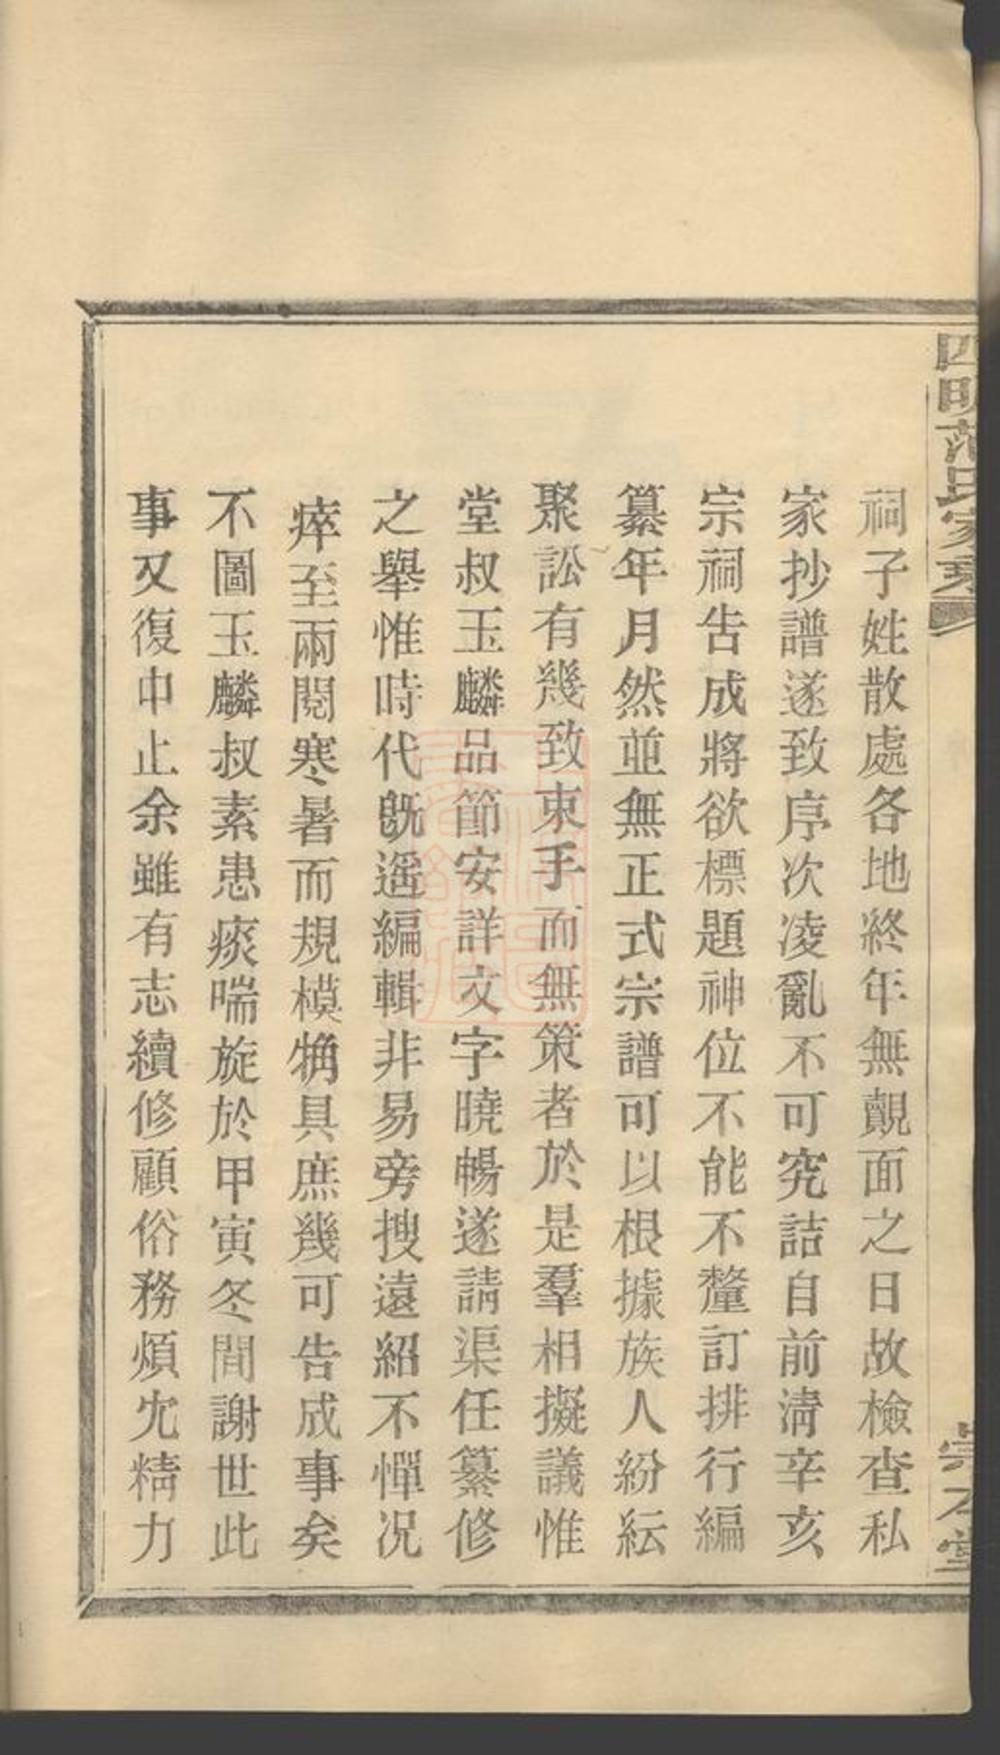 四明范氏家乘
崇本堂
祠子姓散處各地終年無覿面之日故檢查私
家抄譜遂致序次凌亂不可究詰自前淸辛亥
宗祠告成將欲標題神位不能不釐訂排行編
纂年月然並無正式宗譜可以根據族人紛紜
聚訟有幾致束手而無策者於是羣相擬議惟
堂叔玉麟品節安詳文字曉暢遂請渠任纂修
之舉惟時代旣遥編輯非易旁搜遠紹不憚况
瘁至兩閱寒暑而規模觕具庶幾可告成事矣
不圖玉麟叔素患痰喘旋於甲寅冬間謝世此
事又復中止余雖有志續修顧俗務煩冗精力